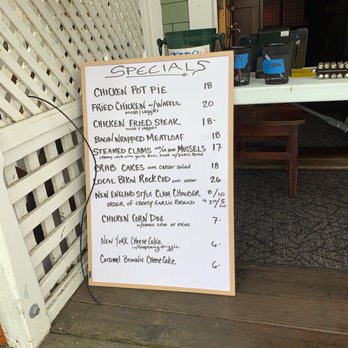 SPECIALS
CHICKEN POT PIE 18
FRIED CHICKEN w/WAFFLE 20
CHICKEN FRIED STEAK 18-
BACON WRAPPED MEATLOAF 18
STEAMED CLAMS MUSSELS 17
CRAB CAKES over caesar salad 18
LOCAL BLKN ROCK COD over caesar 26
NEW ENGLAND STYLE CLAM CHOWDER 8/10
ORDER OF CHEESY GARLIC BREAD
CHICKEN CORN DOG 7-
w/small side of fries
NEW YORK CHEESECAKE 6-
w/Raspberry drizzle
Caramel Brownie Cheesecake 6-